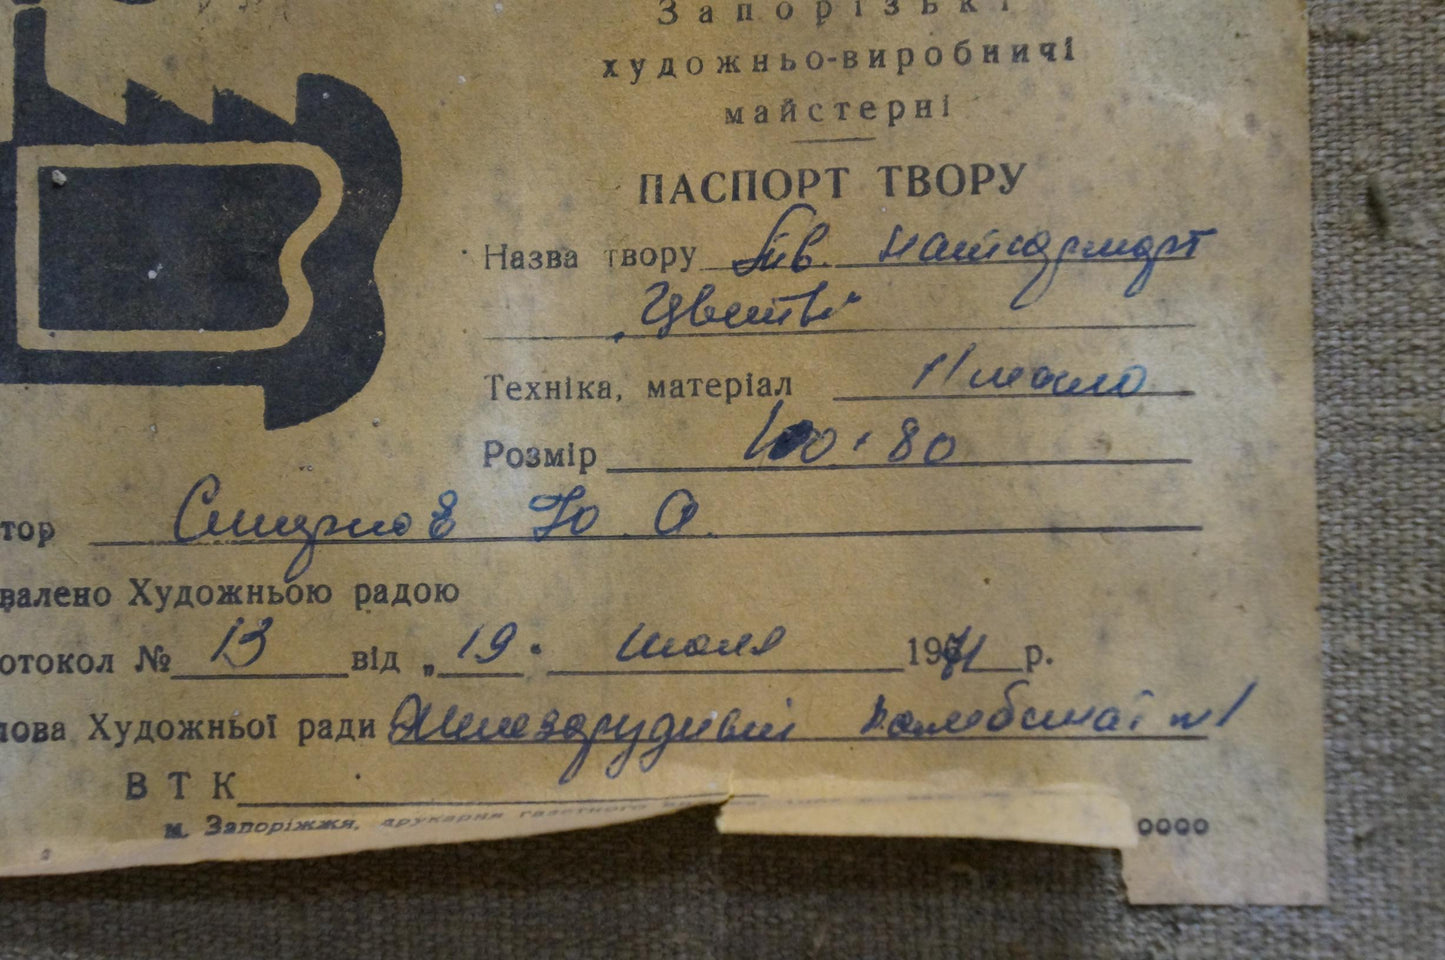 Запорізькі
художньо-виробничі
майстерні
ПАСПОРТ ТВОРУ
Назва твору Тв. натюрморт
„Цветы“
Техніка, матеріал Масло
Розмір 100 × 80
тор Смирнов Ю О.
валено Художньою радою
отокол № 13 від „19“ июля 1971 р.
лова Художньої ради
В Т К
м. Запоріжжя, друкарня газетного
0000